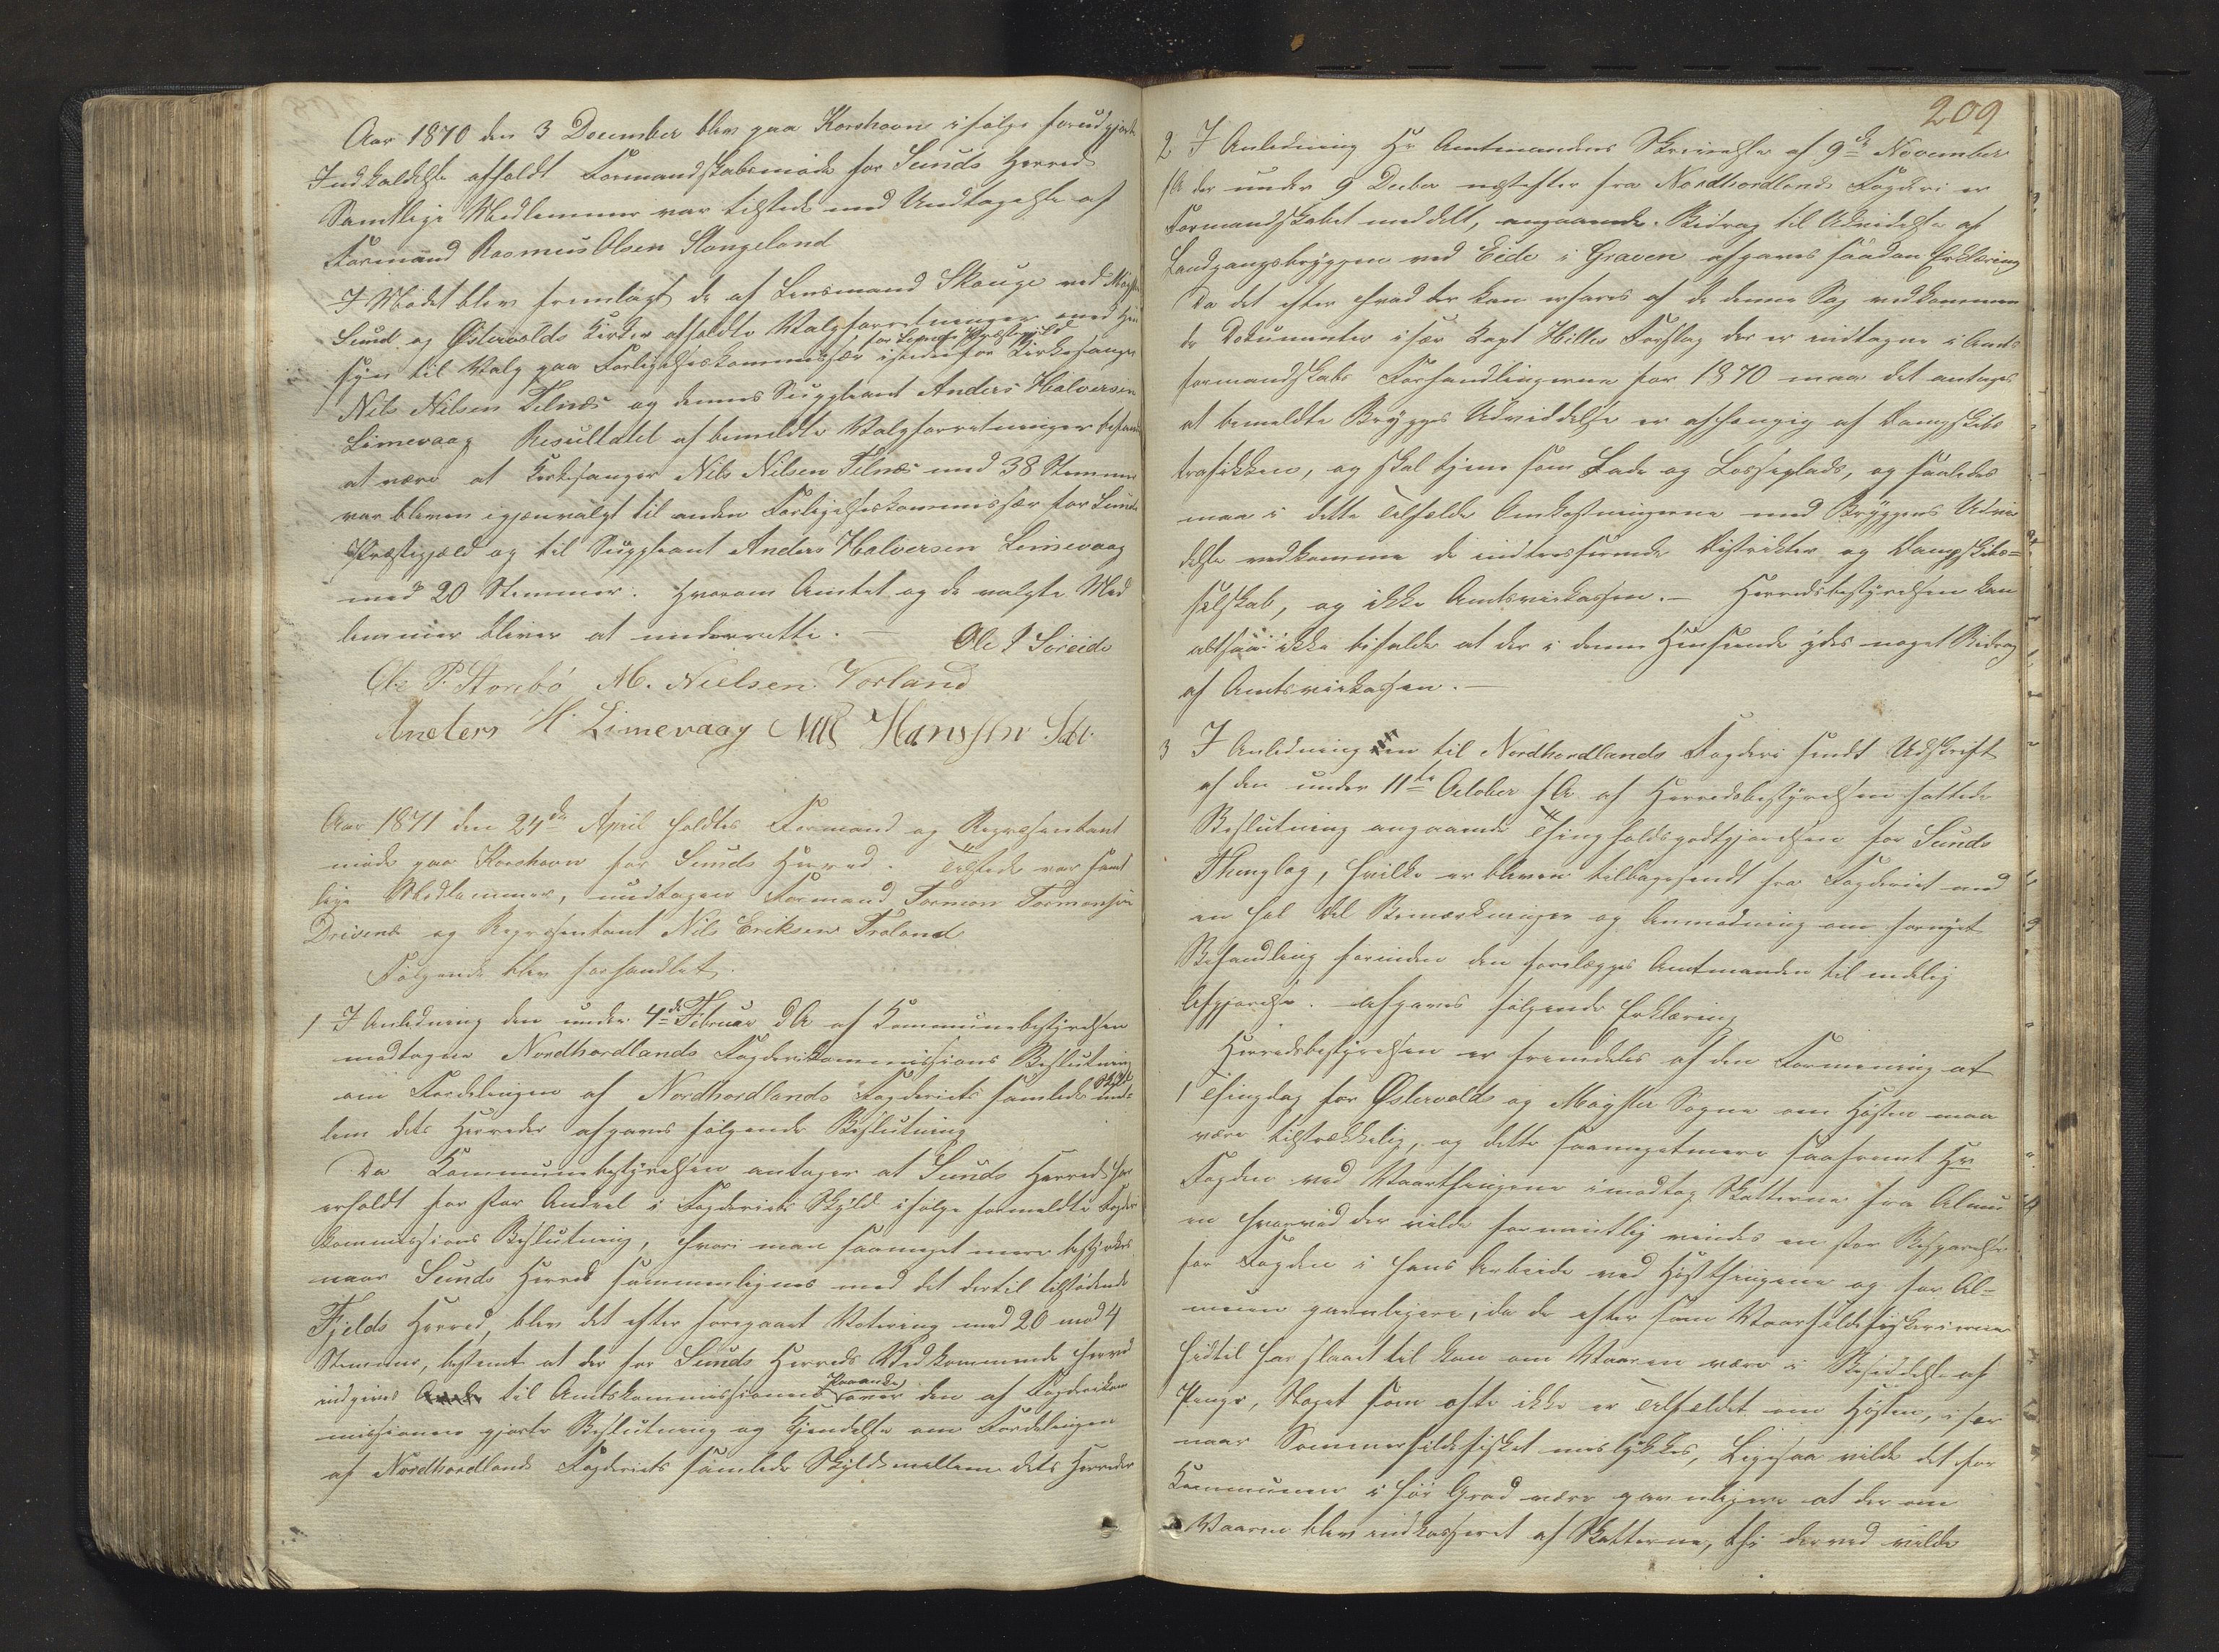 Aar 1870 den 3 December blev paa Korshavn ifølge forudgjort
Indkaldelse afholdt Formandskabsmøde for Sunds Herred
Samtlige Medlemmer var tilstede med Undtagelse af
Formand Rasmus Olsen Stangeland
I Mødet blev fremlagt de af Lensmand Skauge ved Møgster
Sund og Østervolds Kirker afholdte Valgforretninger med Hen
syn til Valg paa Forligelseskommissær istedenfor Kirkesanger
Nils Nilsen Telnæs og dennes Suppleant Anders Halversen
Limevaag Resultatet af bemeldte Valgforretninger befandtes
at være at Kirkesanger Nils Nilsen Telnæs med 38 Stemmer
var bleven igjenvalgt til anden Forligelseskommissær for Sunds
Præstegjæld og til Suppleant Anders Halversen Limevaag
med 20 Stemmer. Hvorom Amtet og de valgte Med
lemmer bliver at underrette. —
Ole I Søreide
Ole P. Storebø M. Nielsen Vorland
Anders H. Limevaag Nils Hanssøn
Aar 1871 den 24de April holdtes Formand og Repræsentant
møde paa Korshavn for Sunds Herred. Tilstede var samt
lige Medlemmer, undtagen Formand Tormon Tormonsen
Drivenes og Repræsentant Nils Eriksen Træland
Følgende blev forhandlet.
1 I Anledning den under 4de Februar d A af Kommunebestyrelsen
modtagne Nordhordlands Fogderikommissions Beslutning
om Fordelingen af Nordhordlands Fogderiets samlede Skyld mel-
lem dets Herreder afgaves følgende Beslutning
Da Kommunebestyrelsen antager at Sunds Herred har
erholdt for stor Andeel i Fogderiets Skyld ifølge formeldte Fogderi
kommissions Beslutning, hvori man saameget mere bestyrkes
naar Sunds Herred sammenlignes med det dertil tilstødende
Fjelds Herred, blev det efter foregaaet Votering med 20 mod 4
Stemmer, bestemt at der for Sunds Herreds Vedkommende herved
indgives til Amtskommissionen Paaanke over den af Fogderikom
missionen gjorte Beslutning og Kjendelse om Fordelingen
af Nordhordlands Fogderiets samlede Skyld mellem dets Herreder
209
2 I Anledning Hr Amtmandens Skrivelse af 9de November
f A der under 9 Decbr næstefter fra Nordhordlands Fogderi er
Formandskabet meddelt, angaaende Bidrag til Udvidelse af
Landgangsbryggen ved Eide i Graven afgaves saadan Erklæring
Da det efter hvad der kan erfares af de denne Sag vedkommen
de Dokumenter især Kapt Hilles Forslag der er indtagne i Amts
formandskabs Forhandlingerne for 1870 maa det antages
at bemeldte Brygges Udvidelse er afhængig af Dampskibs
trafikken, og skal tjene som Lade og Losseplads, og saaledes
maa i dette Tilfælde Omkostningerne med Bryggens Udvi
delse vedkomme de interesserende Distrikter og Dampskibs-
selskab, og ikke Amtsveikassen. — Herredsbestyrelsen kan
altsaa ikke bifalde at der i denne Henseende ydes noget Bidrag
af Amtsveikassen. —
3 I Anledning en til Nordhordlands Fogderi sendt Udskrift
af den under 11te October f A af Herredsbestyrelsen fattede
Beslutning angaaende Thingholdsgodtgjørelsen for Sunds
Thinglag, hvilke er bleven tilbagesendt fra Fogderiet med
en hel Del Bemærkninger og Anmodning om fornyet
Behandling forinden den forelægges Amtmanden til endelig
Afgjørelse. afgaves følgende Erklæring
Herredsbestyrelsen er fremdeles af den Formening at
1 Thingdag for Østervolds og Møgster Sogne om Høsten maa
være tilstrækkelig, og dette saameget mere saafremt Hr
Fogden ved Vaarthingene imodtog Skatterne fra Almu
en hvorved der vilde formentlig vindes en stor Besparelse
for Fogden i hans Arbeide ved Høstthingene og for Al-
muen gavnligere, da de efter som Vaarsildefiskerierne
hidtil har slaaet til kan om Vaaren være i Besiddelse af
Penge, Noget som ofte ikke er Tilfældet om Høsten, især
naar Sommersildfisket mislykkes, Ligesaa vilde det for
Kommunen i høi Grad være gavnligere at der om
Vaaren blev indkasseret af Skatterne, thi derved vilde